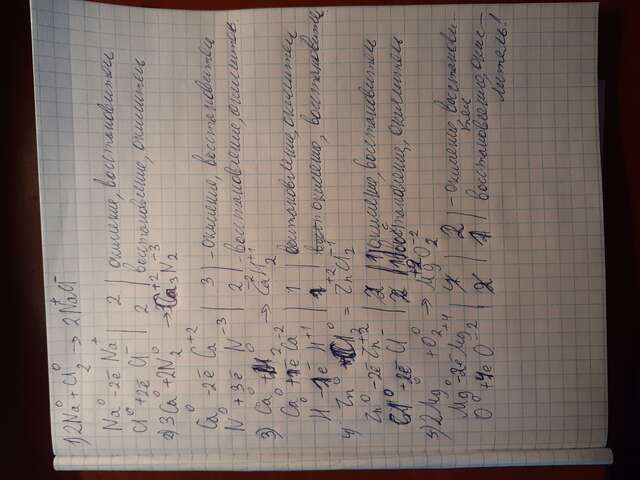 1) 2Na⁰ + Cl₂⁰ → 2Na⁺Cl⁻
Na⁰ - 2ē Na⁺ | 2 | окисление, восстановитель
Cl⁰ + 2ē Cl⁻ | 2 | восстановление, окислитель
2) 3Ca⁰ + 2N₂⁰ → Ca₃⁺²N₂⁻³
Ca⁰ - 2ē Ca⁺² | 3 | - окисление, восстановитель
N⁰ + 3ē N⁻³ | 2 | - восстановление, окислитель
3) Ca⁰ + H₂⁰ → Ca⁻²H₂⁺¹
Ca⁰ + 2ē Ca⁻² | 1 | восстановление, окислитель
H⁰ - 1ē H⁺¹ | 1 | окисление, восстановитель
4) Zn⁰ + Cl₂⁰ = Zn⁺²Cl₂⁻¹
Zn⁰ - 2ē Zn⁺² | окисление, восстановитель
Cl⁰ + ē Cl⁻ | восстановление, окислитель
5) 2Mg⁰ + O₂⁰ → Mg⁺²O⁻²
Mg⁰ - 2ē Mg | 2 | - окисление, восстанови-
тель
O⁰ + 4ē O⁻² | 1 | восстановление, окис-
литель!